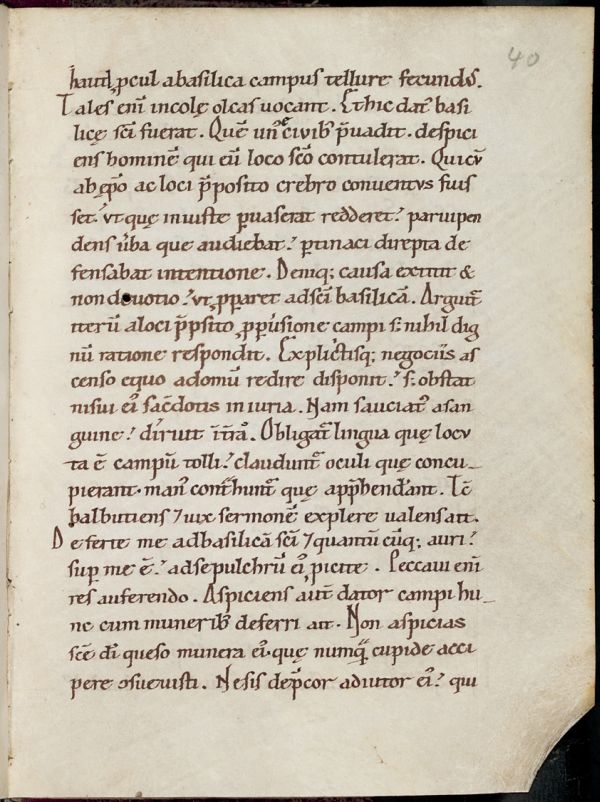 40
haud ꝓcul a basilica campus tellure fecundus.
Tales enī incolę olcas uocant. Et hic dat᷒ basi
licę sc̄i fuerat. Quē un᷒ e ciuib᷒ p̄uadit. despici
ens hominē qui eū loco sc̄o contulerat. Quicū
ab ep̄o ac loci p̄posito crebro conuentus fuis
set. ut quę iniuste ꝑuaserat redderet. paruipen
dens ūba que audiebat. ꝑtinaci direpta de
fensabat intentione. Deniq; causa extitit &
non deuotio ut ꝓꝑaret ad sc̄i basilicā. Arguit᷒
iterū a loci p̄posito ꝓ ꝑuisione campi s; nihil dig
nū ratione respondit. Explicitisq; negociis as
censo equo ad omū redire disponit. s; obstat
nisui ei᷒ sac̄dotis iniuria. Nam sauciat᷒ a san
guine diruit in t̄rā. Obligat᷒ lingua quę locu
ta ē campū tolli claudunt᷒ oculi quę concu
pierant. man᷒ cont̄hunt᷒ quę app̄henderant. Tc̄
balbutiens ⁊ uix sermonē explere ualens ait.
Deferte me ad basilicā sc̄i ⁊ quantū cūq; auri
suꝑ me ē ad sepulchrū ei᷒ ꝓicite. Peccaui enī
res auferendo. Aspiciens aut̄ dator campi hu
nc cum munerib᷒ deferri ait. Non aspicias
sc̄e dī queso munera ei᷒ quę numquā cupide acci
pere ↄsueuisti. Ne sis dep̄cor adiutor ei᷒ qui